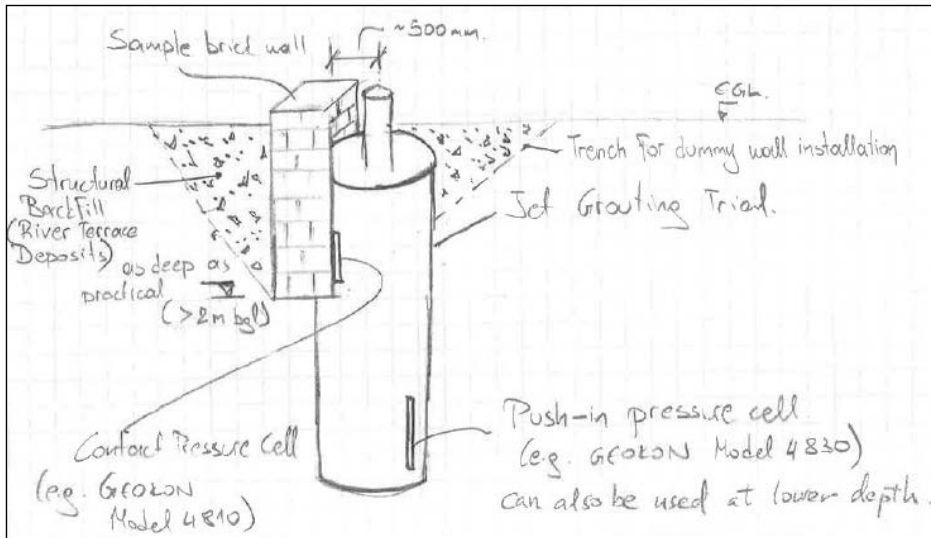 ~500mm.
Sample brick wall
EGL.
Trench for dummy wall installation
Structural
Backfill
(River Terrace
Deposits)
Jet Grouting Trial.
as deep as
practical
(>2m bgl)
Contact Pressure Cell
(e.g. GEOKON
Model 4810)
Push-in pressure cell
(e.g. GEOKON Model 4830)
can also be used at lower depth.